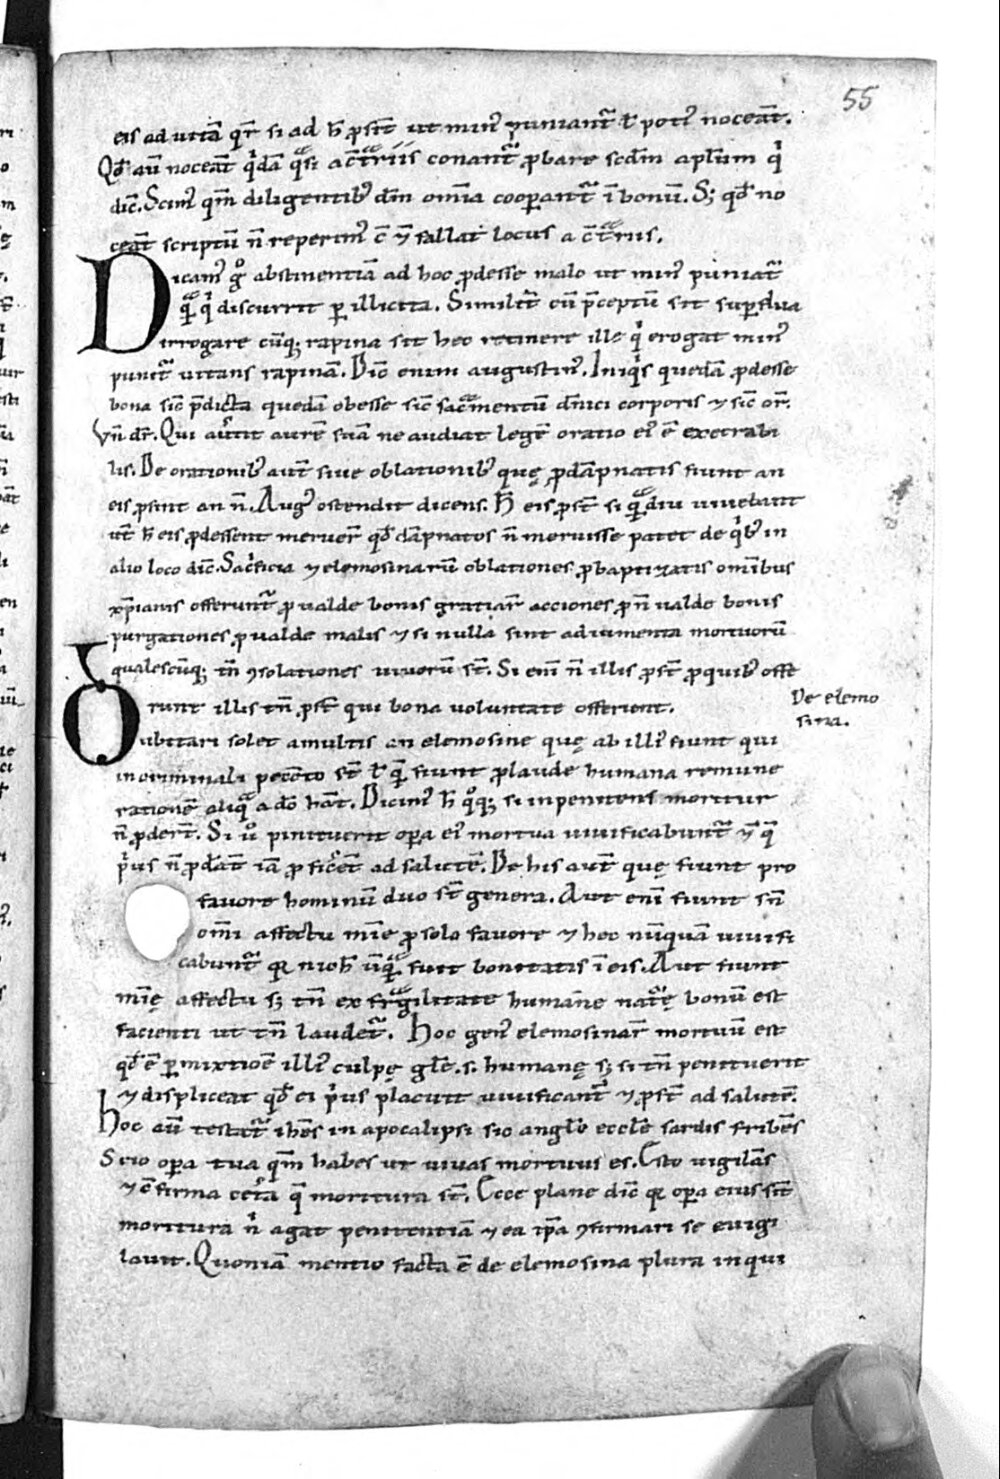 55
eis ad uitā qr̄ si ad h̄ ꝓsūt ut min᷒ puniant᷑ ł poti᷒ noceāt.
Qd̄ aū noceāt qⁱdā qᵃsi a cͣtriis conant᷑ ꝓbare scdm̄ aplm̄ qⁱ
dic̄. Scim᷒ qm̄ diligentib᷒ dm̄ om̄ia cooꝑant᷑ ī bonū. Sꝫ qd̄ no
ceāt scriptū n̄ reperim᷒ ⁊ fallat locus a cͣtriis.
Dicam᷒ gͦ abstinentiā ad hoc ꝓdesse malo ut min᷒ puniat᷑
qᵃ qⁱ discurrit ꝑ illicita. Similit᷑ cū p̄ceptū sit suꝑflua
irrogare cūqꝫ rapina sit hec retinere ille qⁱ erogat min᷒
punit᷑ uitans rapinā. Dic̄ enim augustin᷒. Iniqⁱs quedā ꝓdesse
bona sic̄ p̄dicta quedā obesse sic̄ sacᵃmentū dn̄ici corporis ⁊ sic̄ or̄.
Vn̄ dr̄. Qui au͛tit aurē suā ne audiat legē oratio ei᷒ ē execrabi
lis. De orationib᷒ aut̄ siue oblationib᷒ quę ꝓ dāpnatis fiunt an
eis ꝓsint an n̄. Aug᷒ ostendit dicens. H̄ eis ꝓsūt si qᵃdiu uiuebant
ut̄ h̄ eis ꝓdessent meruer̄ qd̄ dāpnatos n̄ meruisse patet de qⁱb᷒ in
alio loco dic̄. Sacⁱficia ⁊ elemosinarū oblationes ꝓ baptizatis omībus
xp̄ianis offerunt᷑ ꝓ ualde bonis gratiaꝝ acciones ꝓ n̄ ualde bonis
purgationes ꝓ ualde malis ⁊ si nulla sint adiumenta mortuorū
qualescūqꝫ tn̄ ꝯsolationes uiuorū st̄. Si eni n̄ illis ꝓst̄ ꝓ quib᷒ offe
runt illis tn̄ ꝓst̄ qui bona uoluntate offerient.
De elemo
sina.
Dubitari solet a multis an elemosine quę ab ill᷒ fiunt qui
in criminali pecc̄o st̄ ł qᵃ fiunt ꝓ laude humana remune
rationē aliqᵃ a dō hāt. Dicim᷒ h̄ qͦqꝫ si inpenitens moritur
n̄ ꝓder̄t. Si uͦ penituerit oꝑa ei᷒ mortua uiuificabunt᷑ ⁊ q̄
pⁱus n̄ ꝓdāt iā ꝓficīet ad salutē. De his aut̄ quę fiunt pro
fauore hominū duo st̄ genera. Aut enī fiunt sn̄
omī affectu mīe ꝓ solo fauore ⁊ hoc nūquā uiuifi
cabunt᷑ qꝛ nichˡ ūqᵃ fuit bonitatis ī eis. Aut fiunt
mīę affectu sꝫ tn̄ ex frᵃgilitate humane nat᷑ę bonū est
facienti ut tn̄ laudet᷑. Hoc gen᷒ elemosinaꝝ mortuū est
qd̄ ē ꝑmixtioē illi᷒ culpę gl̄e .s. humanę sꝫ si tn̄ penituerit
⁊ displiceat qd̄ ei pⁱus placuit uiuificant᷑ ⁊ ꝓst̄ ad salutē.
Hoc aū testat᷑ ih̄es in apocalipsi sic anglō ecclē sardis scribēs
Scio oꝑa tua qm̄ habes ut uiuas mortuus es. Esto uigilās
⁊ ꝯfirma cet͛a q̄ moritura st̄. Ecce plane dic̄ qꝛ oꝑa eius st̄
moritura nⁱ agat penitentiā ⁊ ea ip̄a ꝯfirmari se euigi
lauit. Quoniā mentio facta ē de elemosina plura inqui